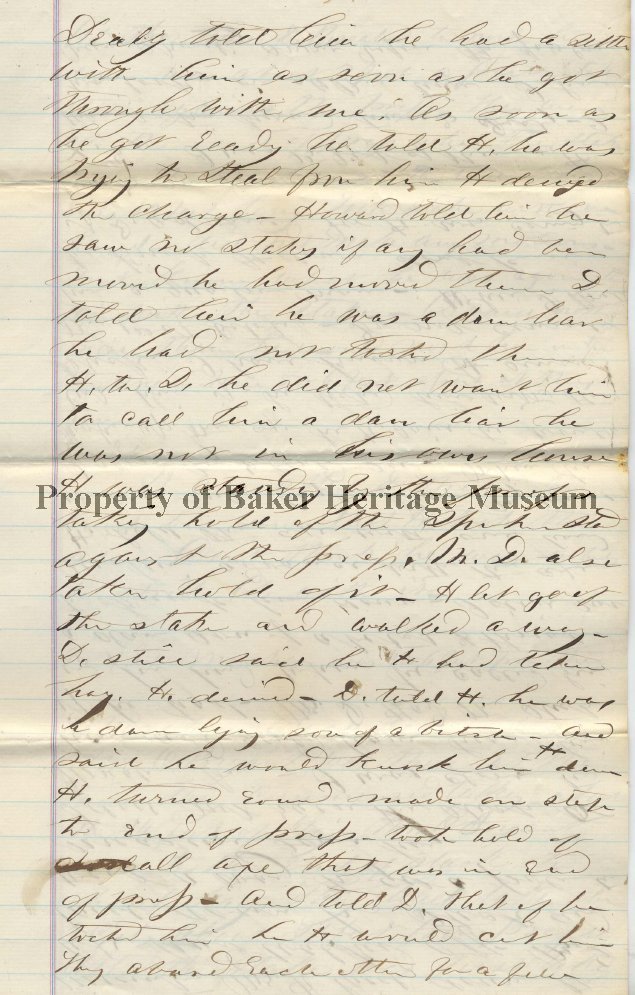 Dealy told him he had a settle
with him as soon as he got
through with me. As soon as
he got ready he told H. he was
trying to steal from him H denied
the charge - Howard told him he
saw no stakes if any had been
moved he had moved them D.
told him he was a dam liar
he had not toched them
H. to. D. he did not want him
to call him a dam liar he
was not in his own house
H was standing by the
Property of Baker Heritage Museum
taking hold of the
against the press. Mr. D. also
taken hold of it - H let go of
the stake and walked away -
D. still said he H had taken
hay. H. denied - D. told H. he was
a dam lying son of a bitch - and
said he would knock him H down
H. turned round made on step
to end of press - took hold of
small axe that was in end
of press - and told D. that if he
toched him he H. would cut him
They abused each other for a few